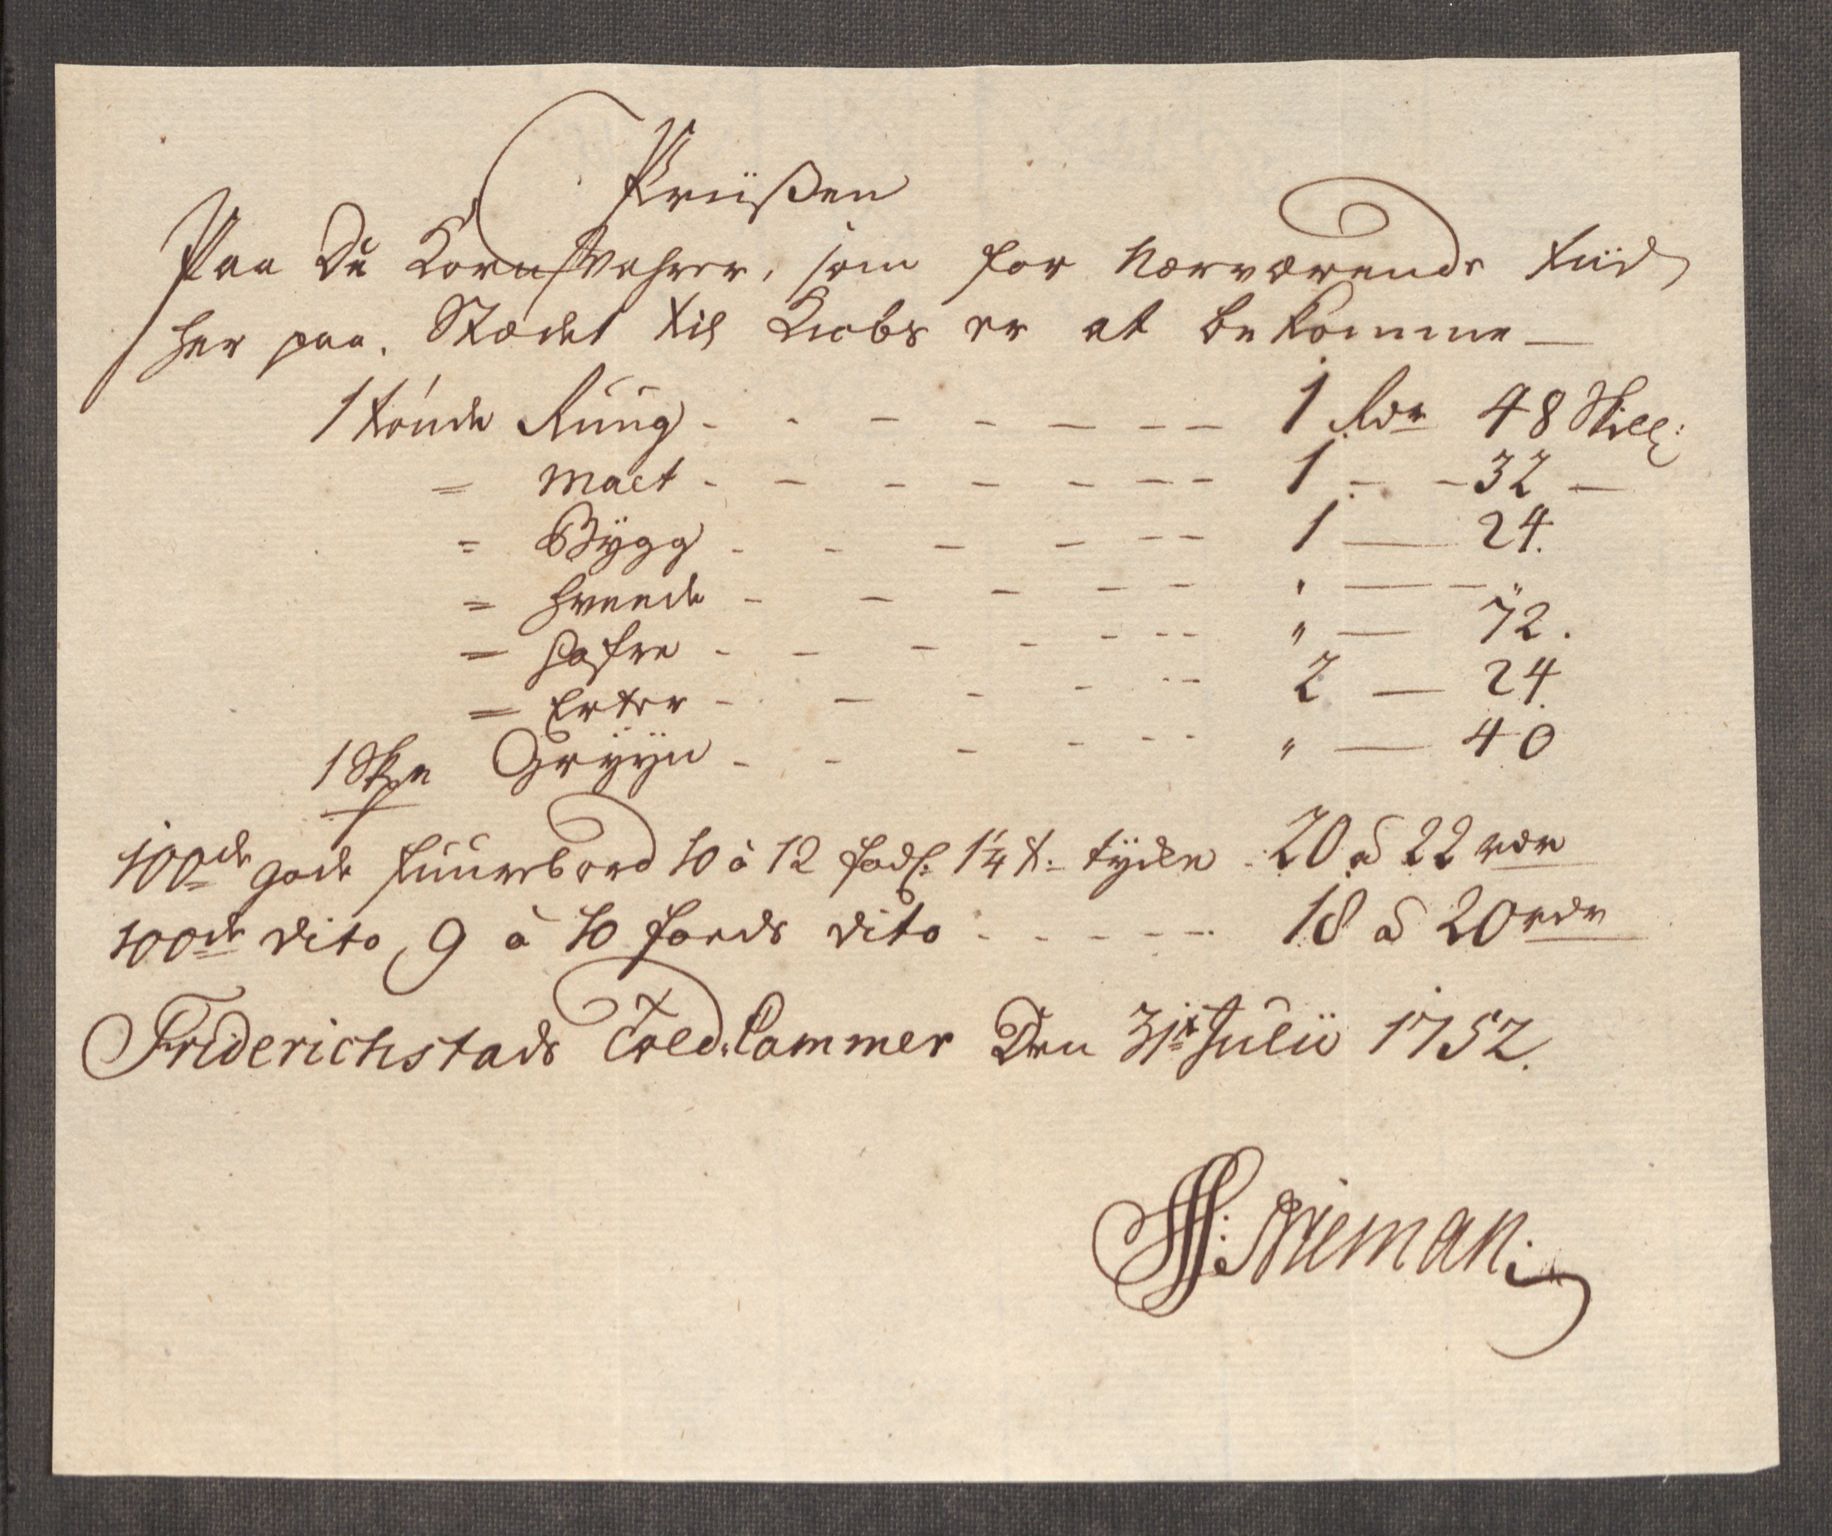 Priißen
Paa De Korn Vahrer, som for Nærværende tiid
her paa Stædet til Kiøbs er at bekomme —
1 tönde Rūūg - - - - - - - 1 Rdr 48 Skill:
= Malt - - - - - - - 1 - - 32 —
= Bÿgg - - - - - - 1 — 24.
= Hveede - - - - - - " — - "
= Hafre - - - - - - - " — 72.
= Erter - - - - - - 2 — 24.
1 Skpe Grÿÿn - - - - - - " — 40
100de gode fuurebord 10 à 12 fods. 1¼ t: tyche - 20 à 22 rdr
100de dito 9 à 10 foeds dito - - - - - - 18 à 20 rdr
Friderichstads Told-Cammer Den 31te Julii 1752.
Nieman.